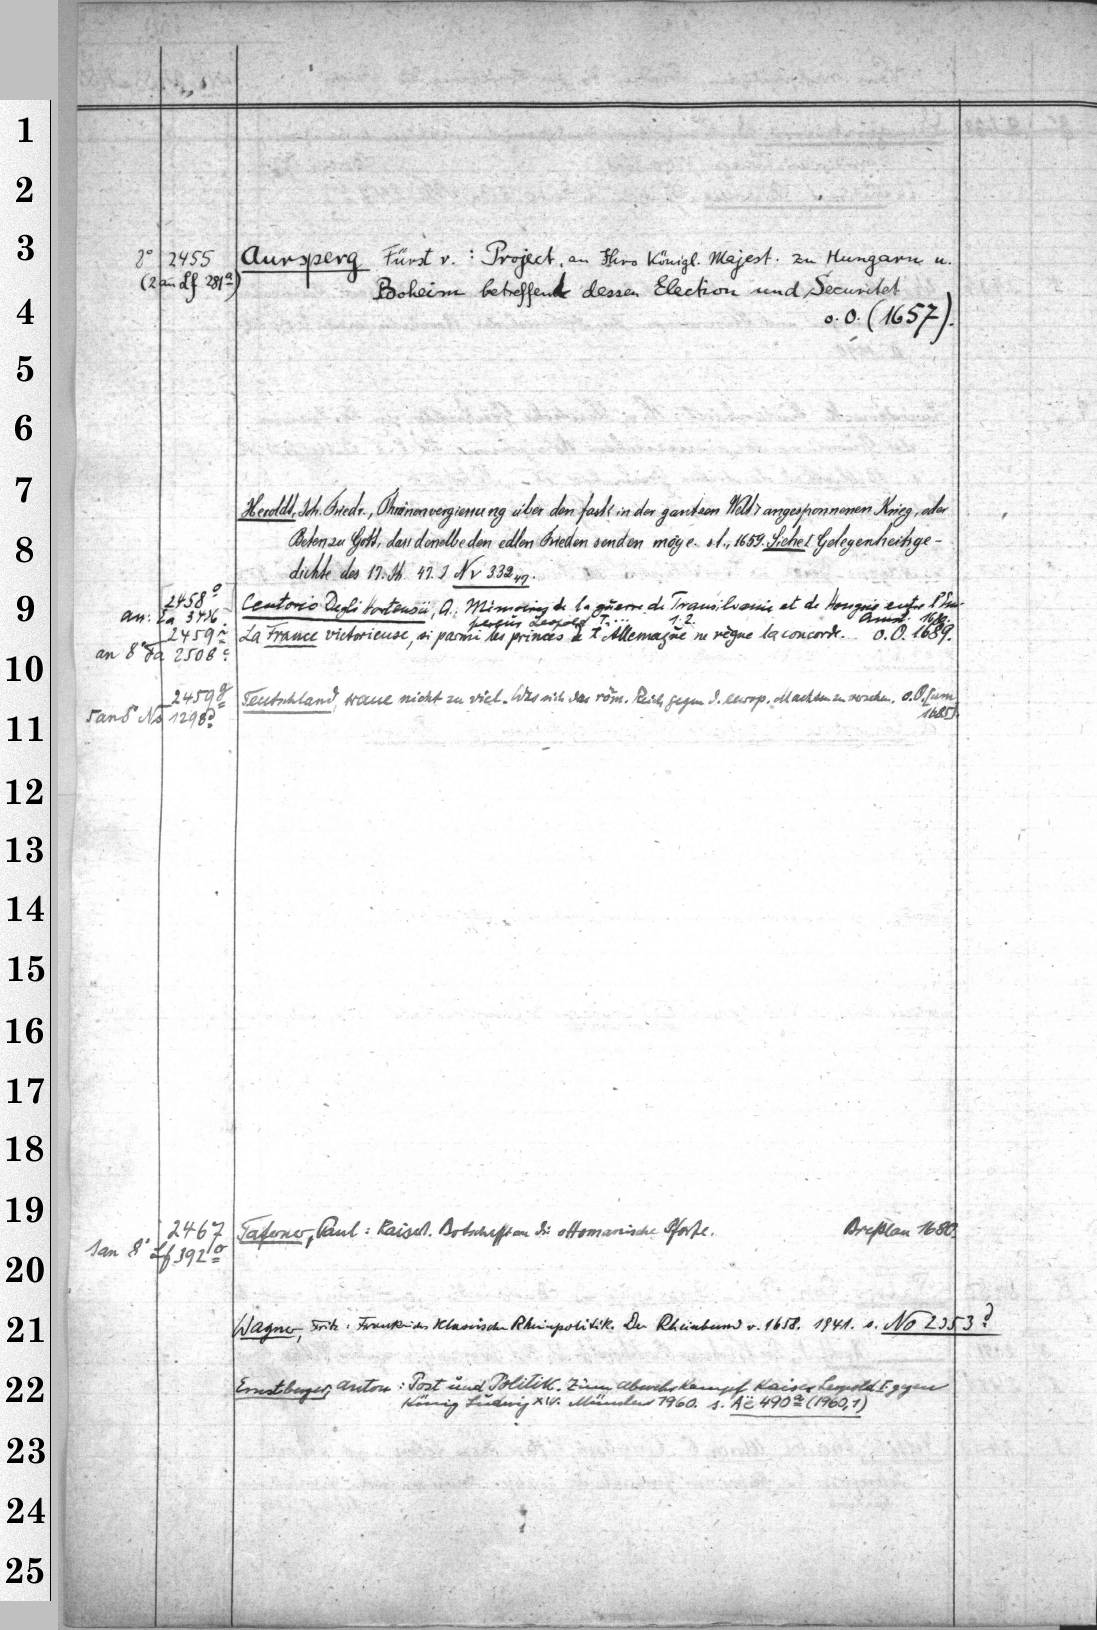 1
2
3
8° 2455 Aursperg Fürst v. : Project, an Ihro Königl. Majest. zu Hungarn u.
(2 an Lf 281ª) Boheim betreffend dessen Election und Securitet
4
o. O. (1657).
5
6
7
Heroldt, Joh. Friedr., Thränenvergiessung über den fast in der gantzen Welt angesponnenen Krieg, oder
8
Beten zu Gott, dass derselbe den edlen Frieden senden möge. s.l., 1659. Siehe! Gelegenheitsge-
dichte des 17. Jh. 47. I Nv 332 47.
9
2458° Centorio Degli Hortensii, A.: Mémoires de la guerre de Transilvanie et de Hongrie entre l'Em-
pereur Leopold I. ... 1.2. Amst. 1680.
2459ª La France victorieuse, si parmi les princes d'Allemagne ne règne la concorde. o. O. 1689.
10
an 8° Fa 2508
2459g Teutschland, traue nicht zu viel. Was sich das röm. Reich gegen d. europ. Machten zu versehen. o. O. [um
5 an 8° No 1298 1685].
11
12
13
14
15
16
17
18
19
2467 Taferner, Paul: Kaiserl. Botschafft an die ottomanische Pforte. Breßlau 1680.
1 an 8° Lf 392
20
21
Wagner, Fritz: Frankreichs klassische Rheinpolitik. Der Rheinbund v. 1658. 1941. s. No 2353
22
Ernstberger, Anton: Post und Politik. Zum Abwehrkampf Kaiser Leopold I. gegen
König Ludwig XIV. München 1960. s. Ac 490ª (1960,1)
23
24
25